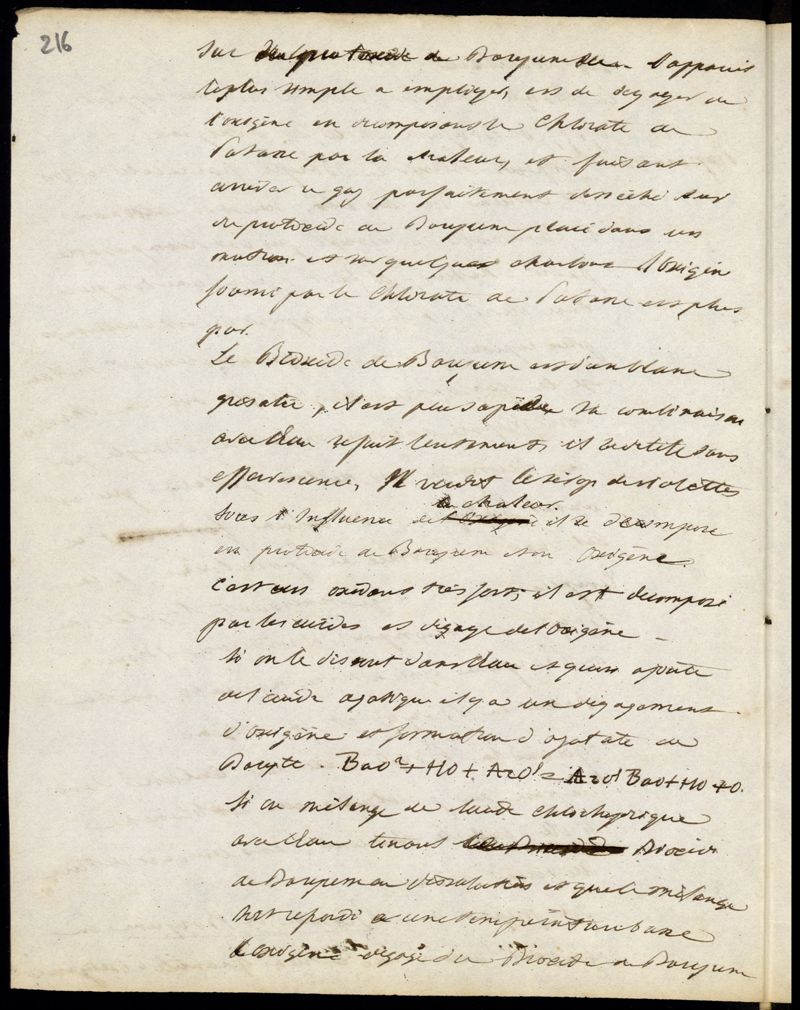 216
sur de Baryum l'appareil
le plus simple a employer, est de degager de
l'oxigène en decomposant le Chlorate de
Potasse par la chaleur, et faisant
arriver ce gaz parfaitement desséché sur
du protoxide de Baryum placé dans un
et sur quelques charbons l'Oxigène
fourni par le Chlorate de Potasse est plus
pur.
Le Bioxide de Baryum est d'un blanc
grisatre, il est sa combinaison
avec l'eau se fait lentement, il se delite sans
effervescence, Il verdit le sirop de violettes
la chaleur.
sous l'Influence de il se decompose
en protoxide de Baryum et en Oxigène.
C'est un oxidant très fort, il est decomposé
par les acides et dégage de l'Oxigène –
Si on le dissout dans l'eau et qu'on ajoute
de l'acide azotique il y a un dégagement
d'Oxigène et formation d'azotate de
Baryte. BaO² + HO + AzO⁵ = AzO⁵ BaO + HO + O.
Si on mélange de l'acide chlorhydrique
avec l'eau tenant Bioxide
de Baryum en dissolution et que le mélange
soit refroidi a une température basse
l'Oxigène dégagé du Bioxide de Baryum